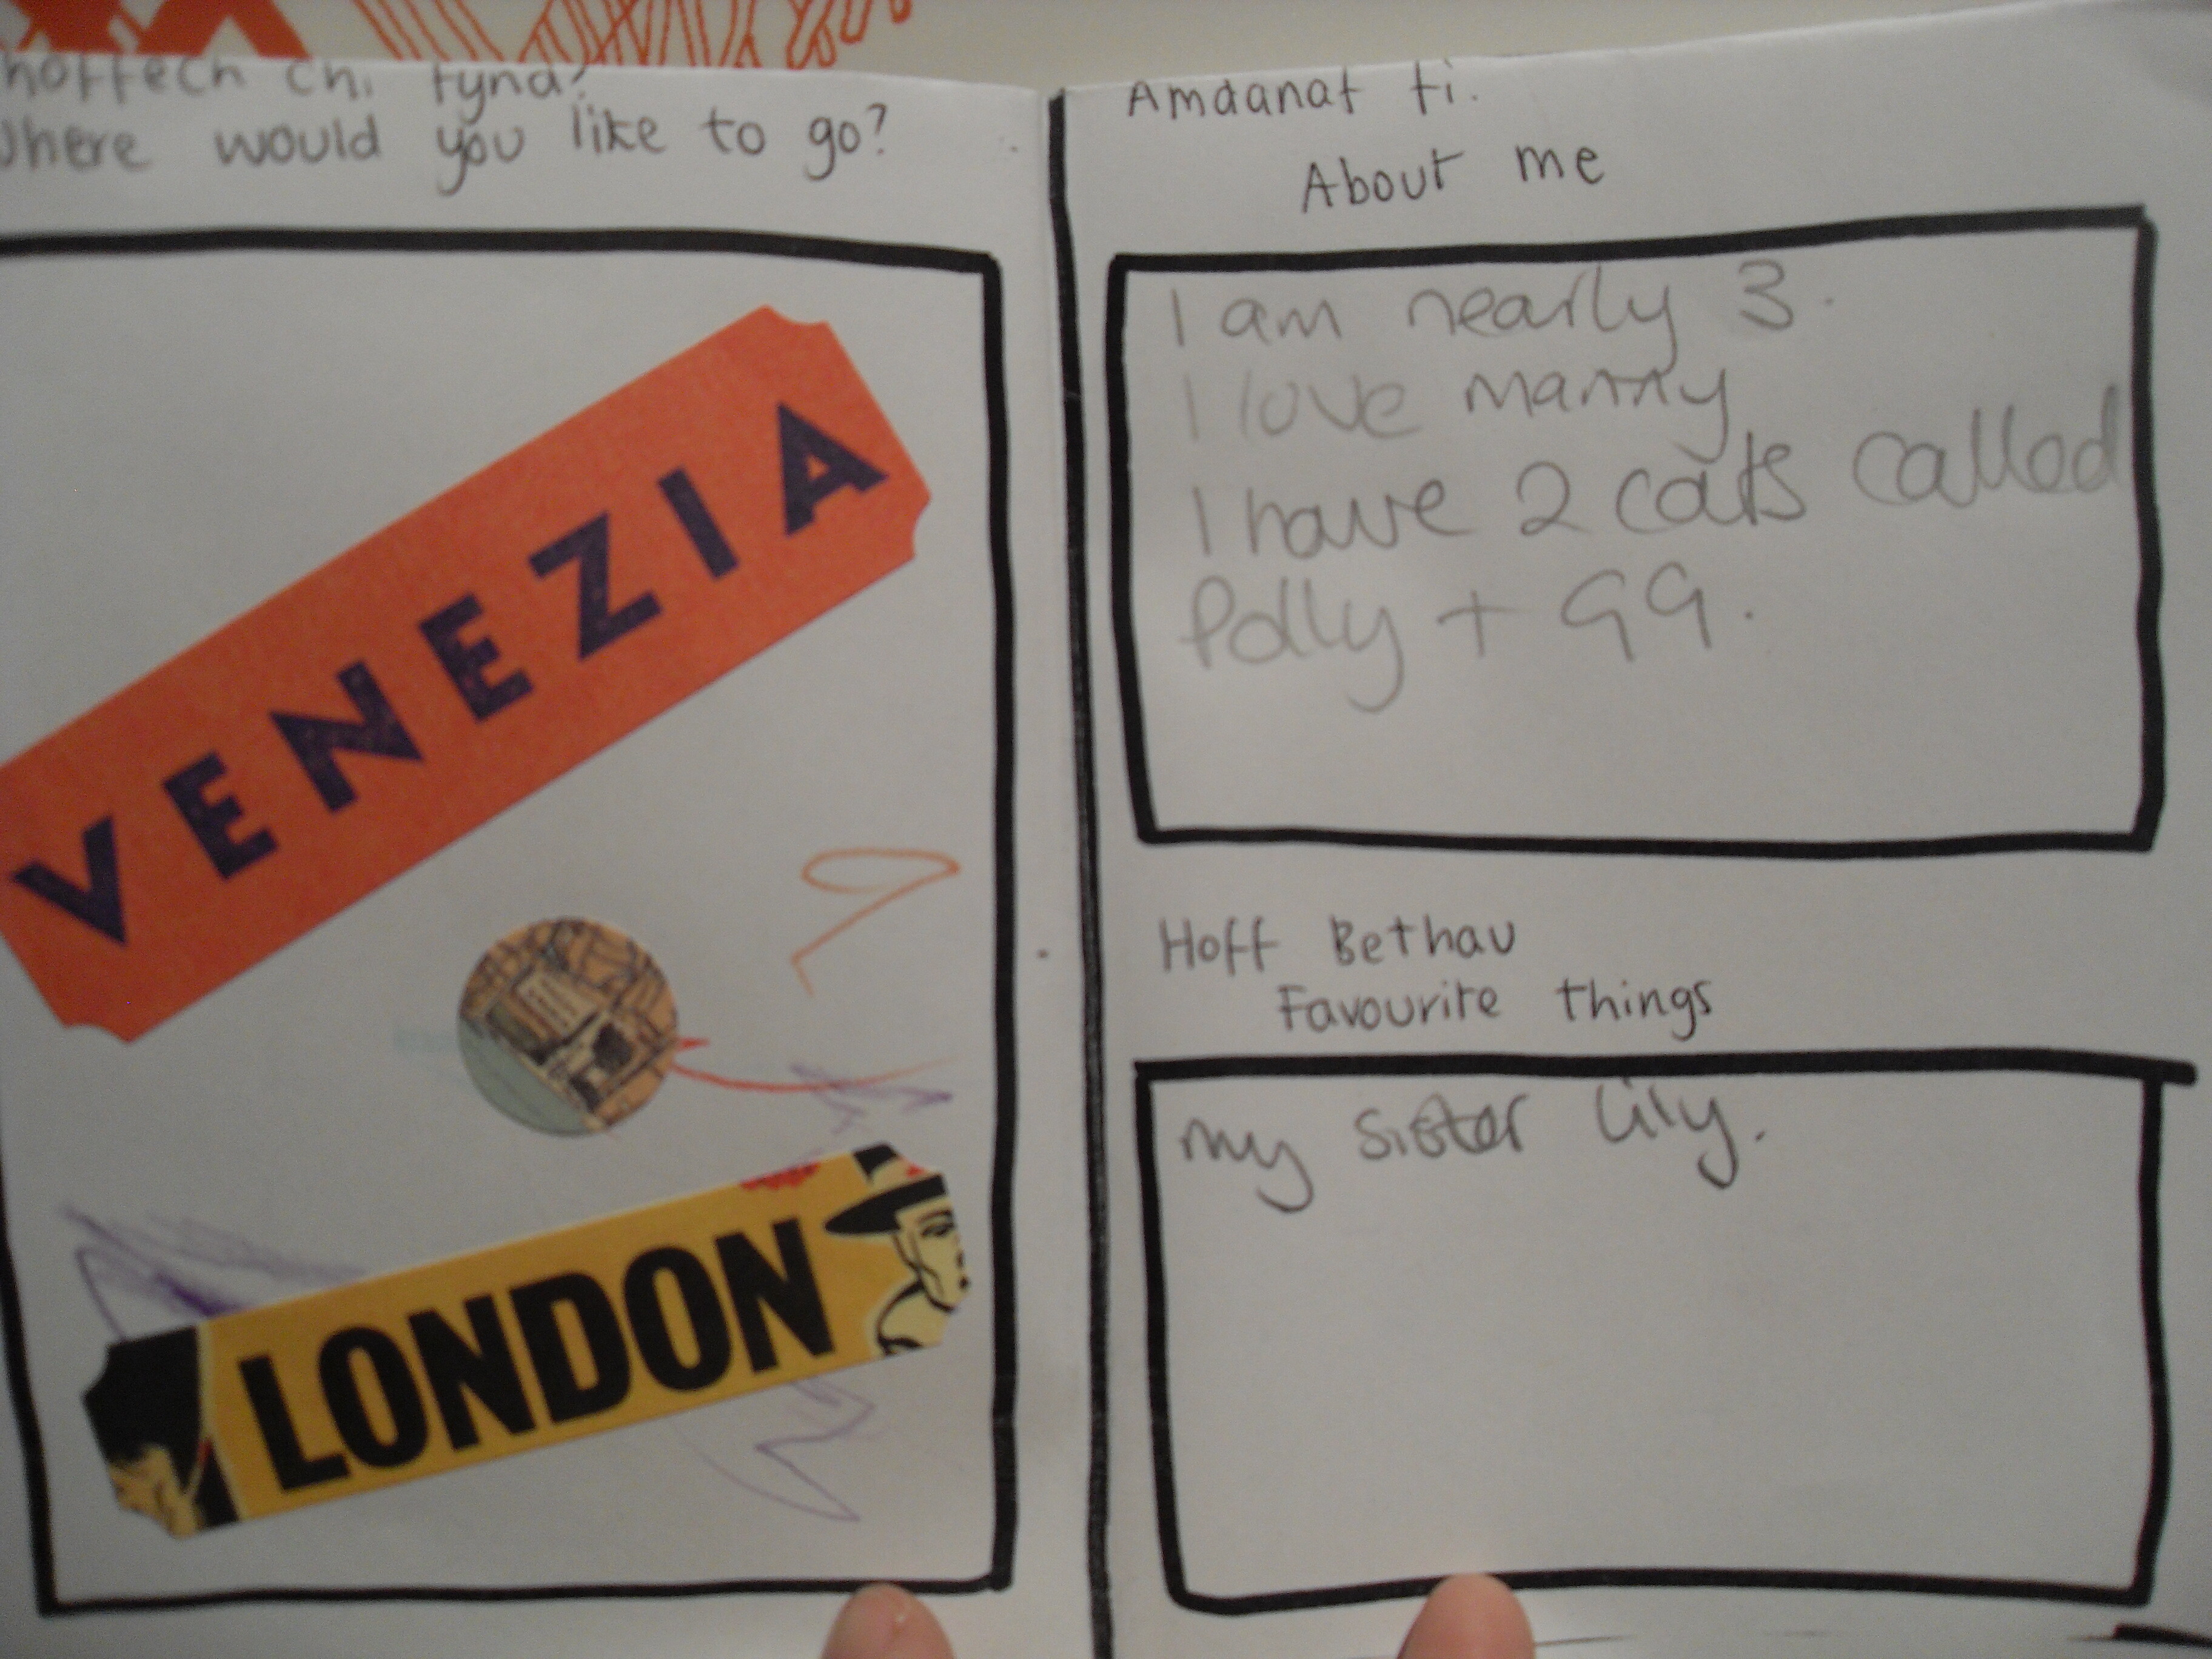 hoffech chi fynd?
Where would you like to go?
VENEZIA
LONDON
Amdanat ti.
About me
I am nearly 3.
I love manny
I have 2 cats called
Polly + GG.
Hoff Bethau
Favourite things
my sister Lily.